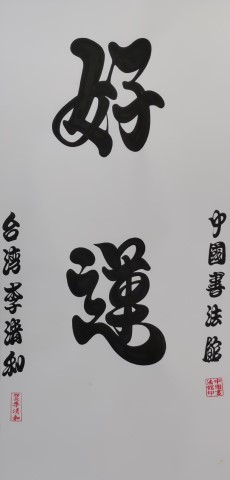 好運
中國書法館
台湾李清和